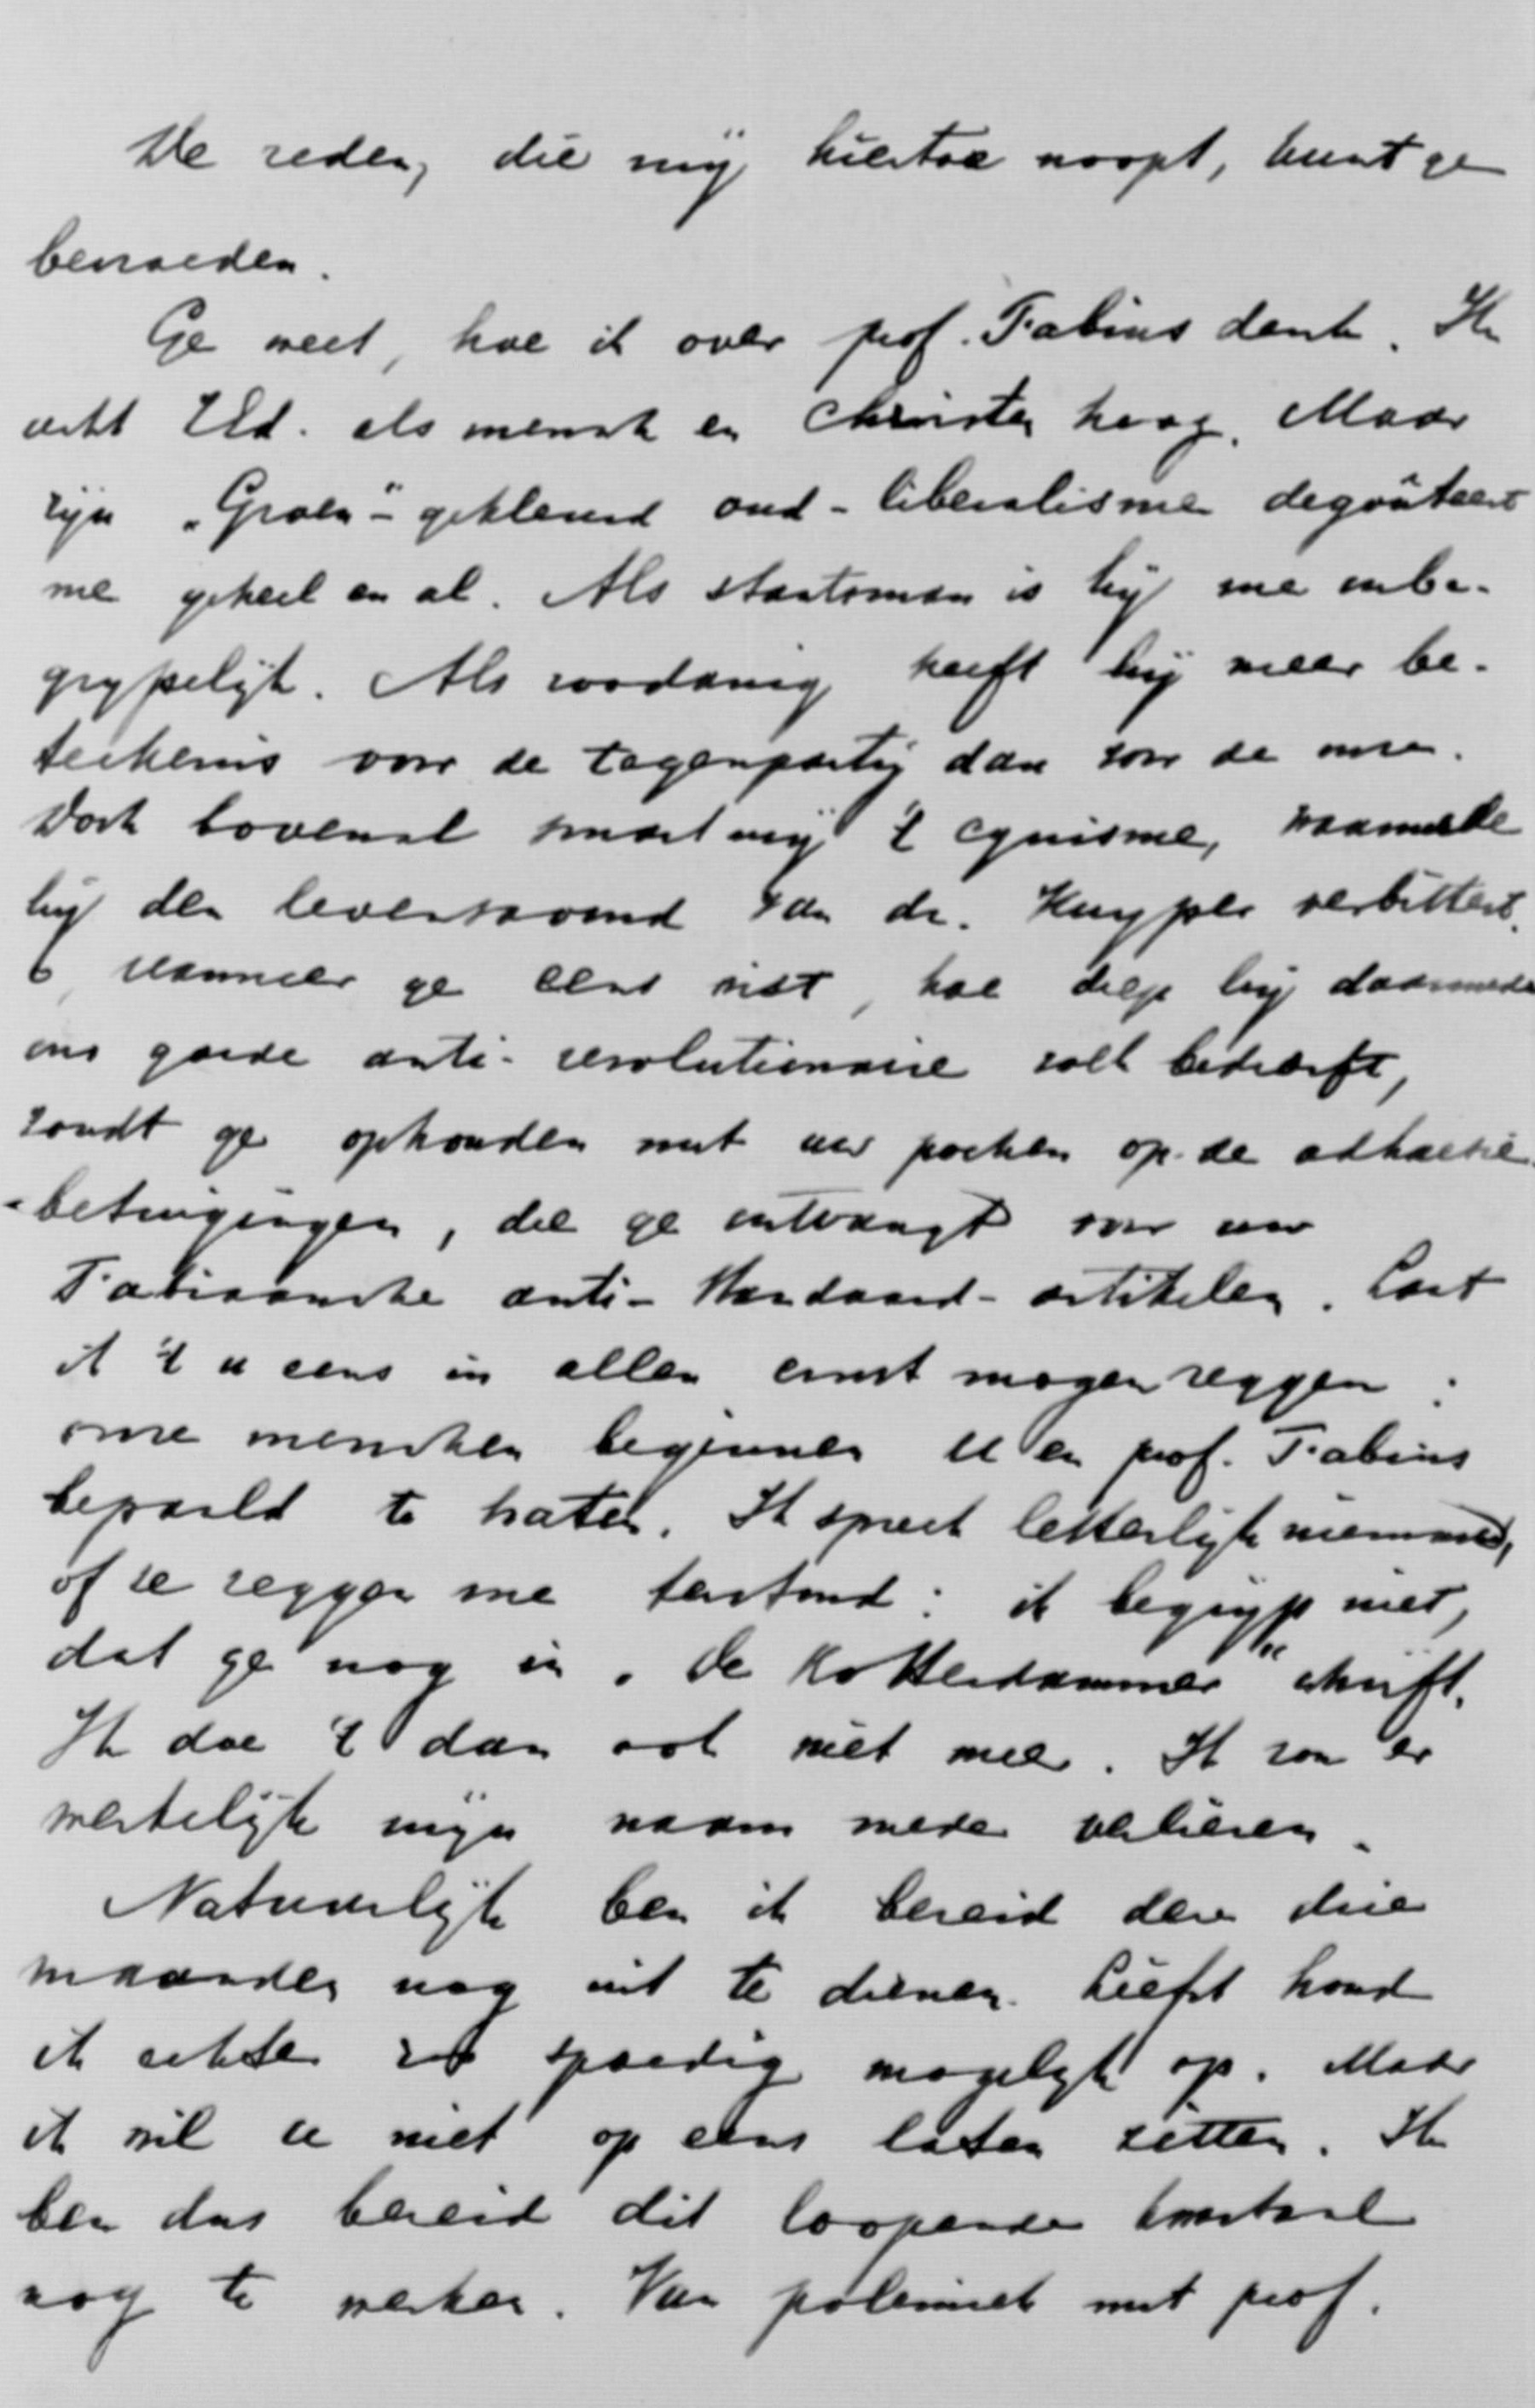 De reden, die mij hiertoe noopt, kunt ge
bevroeden.
Ge weet, hoe ik over prof. Fabius denk. Ik
acht ZEd. als mensch en Christen hoog. Maar
zijn „Groen"-gekleurd oud-liberalisme degoûteert
me geheel en al. Als staatsman is hij me onbe-
grijpelijk. Als zoodanig heeft hij meer be-
teekenis voor de tegenpartij dan voor de onze.
Doch bovenal smart mij 't cynisme, waarmede
hij den levensavond van dr. Kuyper verbittert.
O, wanneer ge eens wist, hoe diep hij daarmede
ons goede anti-revolutionaire volk bedroeft,
zoudt ge ophouden met uw pochen op de adhaesie
-betuigingen, die ge ontvangt voor uw
Fabiaansche anti-Standaard-artikelen. Laat
ik 't u eens in allen ernst mogen zeggen:
onze menschen beginnen U en prof. Fabius
bepaald te haten. Ik spreek letterlijk niemand,
of ze zeggen me terstond: ik begrijp niet,
dat ge nog in „De Rotterdammer" schrijft.
Ik doe 't dan ook niet meer. Ik zou er
werkelijk mijn naam mede verliezen.
Natuurlijk ben ik bereid deze drie
maanden nog uit te dienen. Liefst houd
ik echter zoo spoedig mogelijk op. Maar
ik wil u niet op eens laten zitten. Ik
ben dus bereid dit loopende kwartaal
nog te werken. Van polemiek met prof.